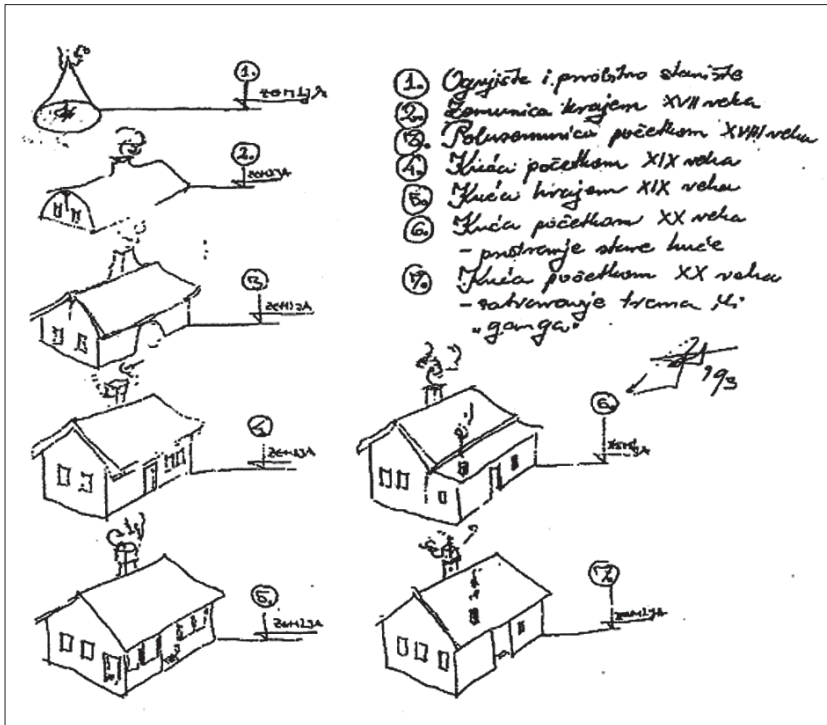 1. zemlja
2. zemlja
3. zemlja
4. zemlja
5. zemlja
6. zemlja
7. zemlja
1. Ognjište i prvobitno stanište
2. Zemunica krajem XVII veka
3. Poluzemunica početkom XVIII veka
4. Kuća početkom XIX veka
5. Kuća krajem XIX veka
6. Kuća početkom XX veka
- proširenje stare kuće
7. Kuća početkom XX veka
- zatvaranje trema ili
"ganga"